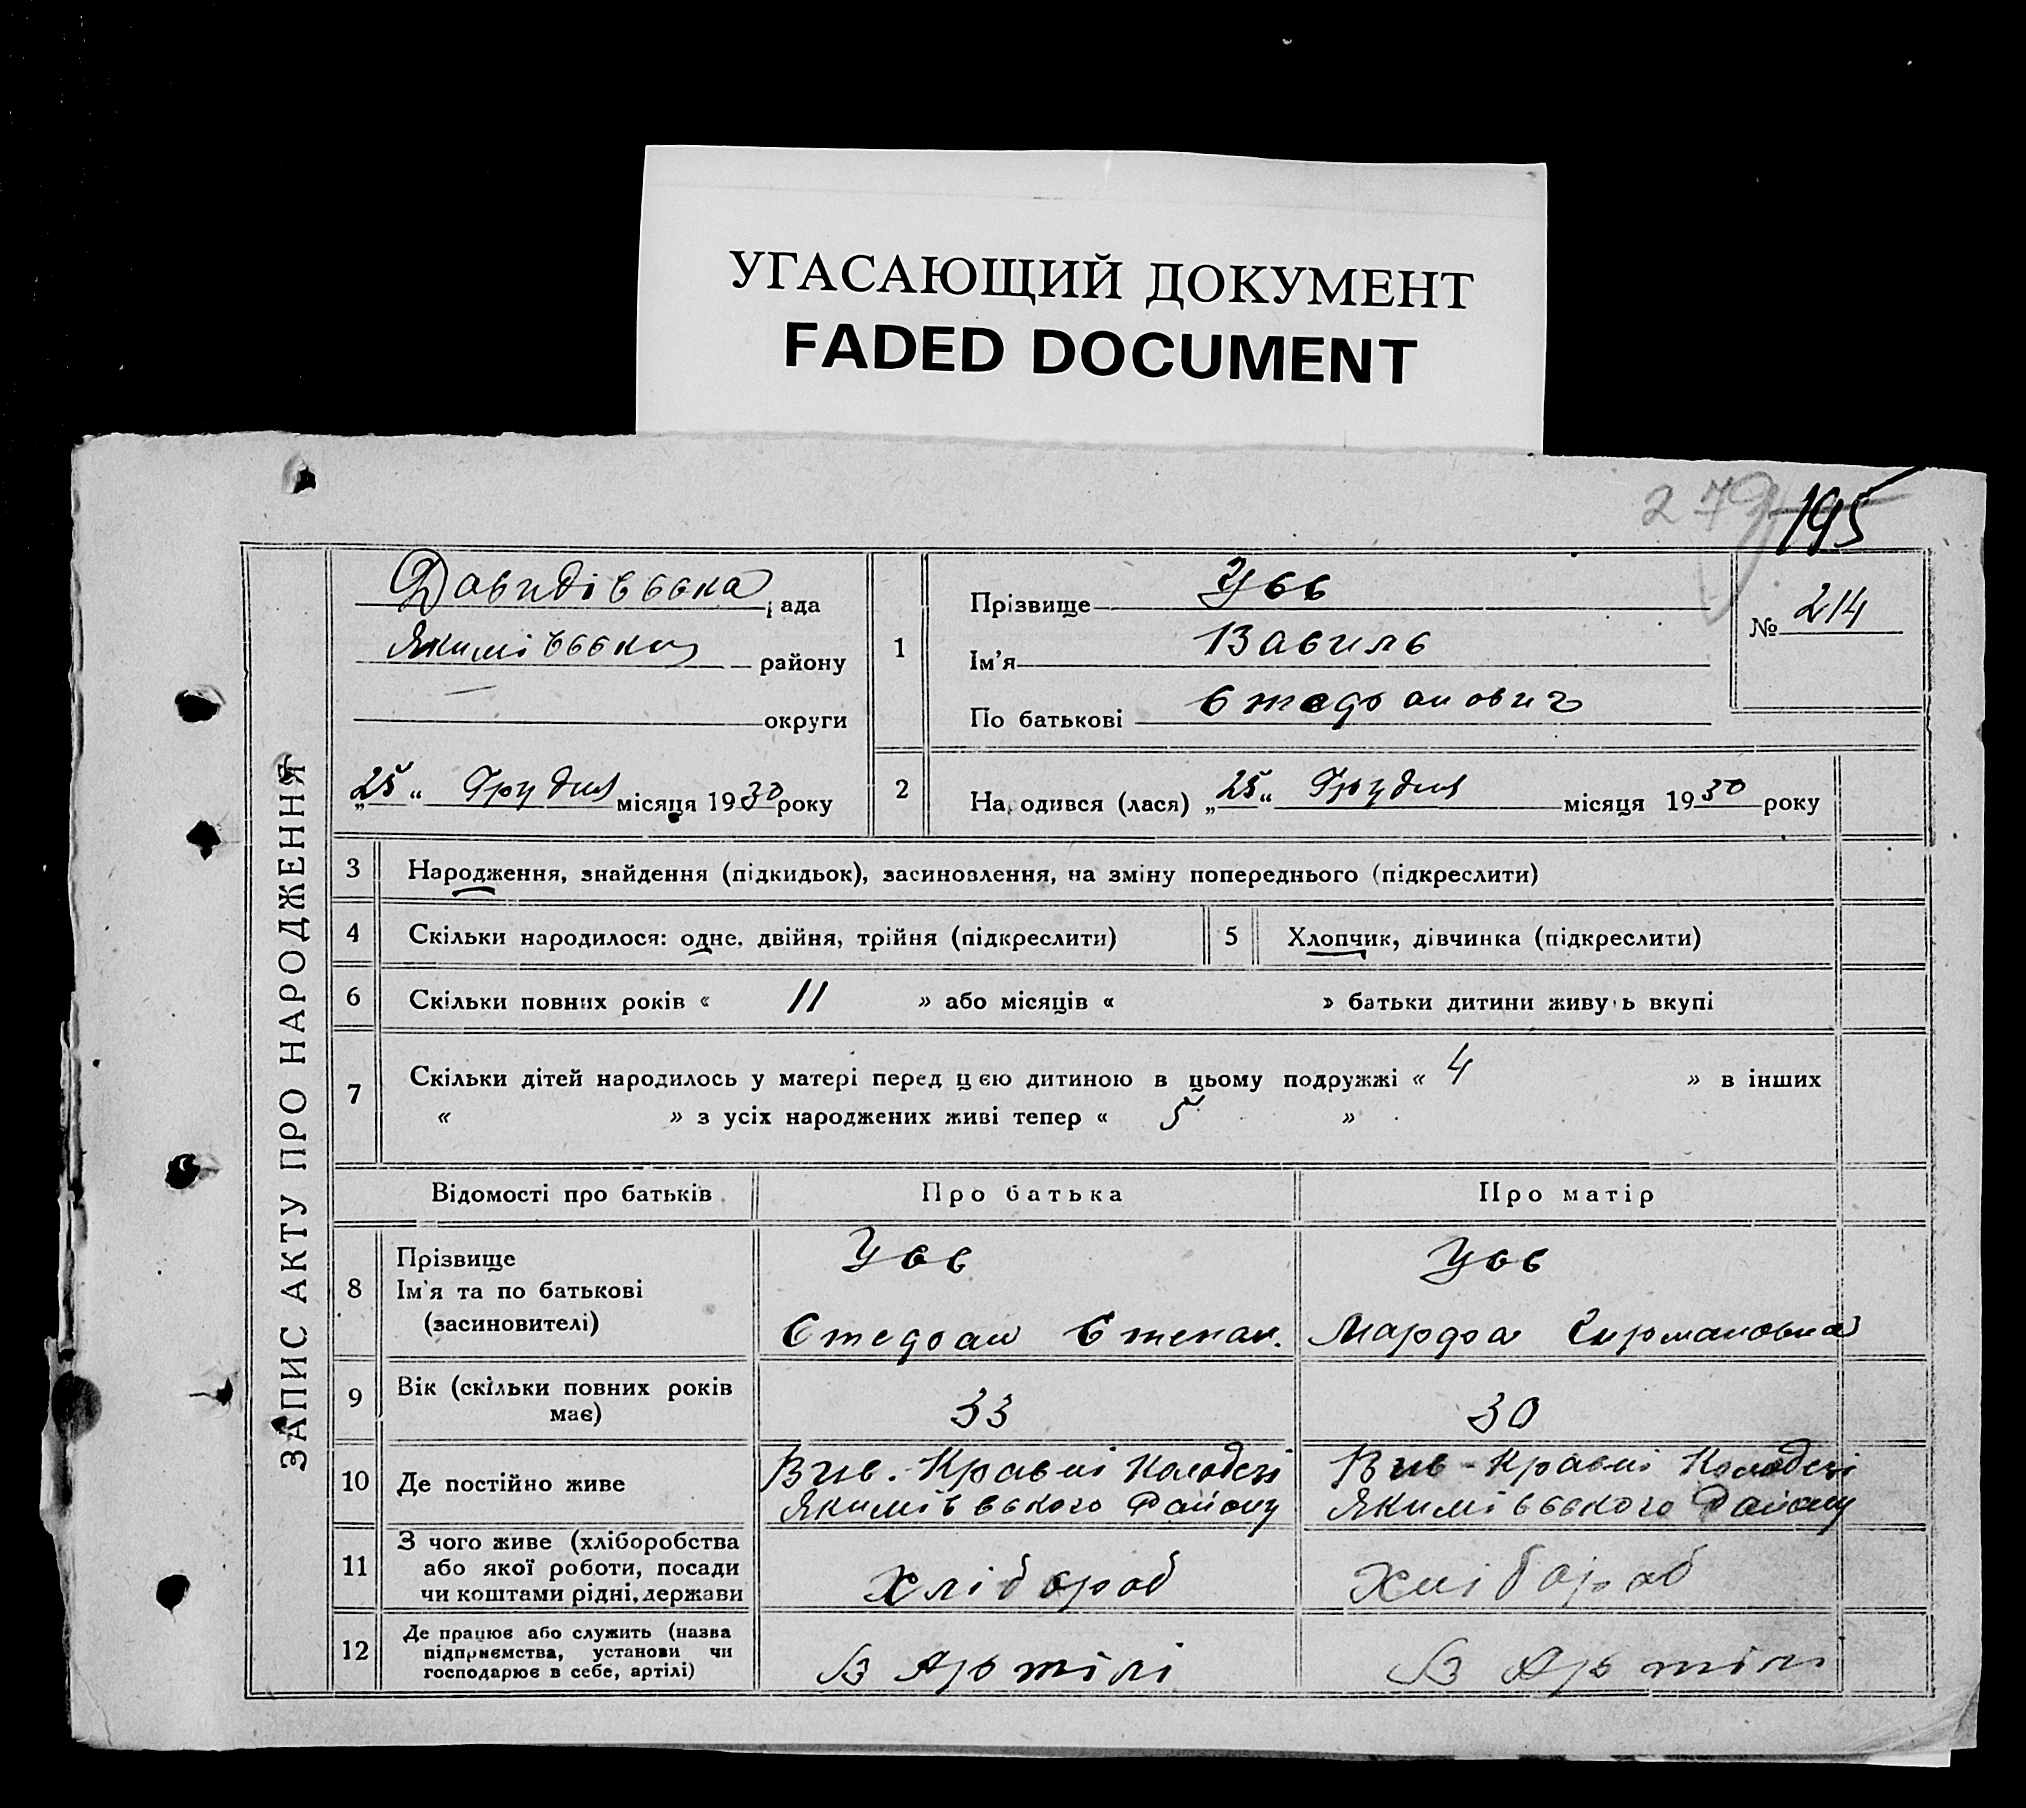 УГАСАЮЩИЙ ДОКУМЕНТ
FADED DOCUMENT
195
ЗАПИС АКТУ ПРО НАРОДЖЕННЯ
Давидівська рада
Якимівська району
округи
„25“ Грудня місяця 1930 року
1
Прізвище Усс
Ім'я Василь
По батькові Стефанович
№ 214
2
Народився (лася) „25“ Грудня місяця 1930 року
3 Народження, знайдення (підкидьок), засиновлення, на зміну попереднього (підкреслити)
4 Скільки народилося: одне, двійня, трійня (підкреслити)
5 Хлопчик, дівчинка (підкреслити)
6 Скільки повних років « 11 » або місяців « » батьки дитини живуть вкупі
7 Скільки дітей народилось у матері перед цєю дитиною в цьому подружжі « 4 » в інших
« » з усіх народжених живі тепер « 5 »
Відомості про батьків Про батька Про матір
8 Прізвище
Ім'я та по батькові
(засиновителі)
Усс
Стефан Степан.
Усс
Марфа
9 Вік (скільки повних років
має)
33
30
10 Де постійно живе
Кравні Колодезі
Якимівського Району
Кравні Колодезі
Якимівського Району
11 З чого живе (хліборобства
або якої роботи, посади
чи коштами рідні, держави
Хлібороб
Хлібороб
12 Де працює або служить (назва
підприємства, установи чи
господарює в себе, артілі)
В Артілі
В Артілі